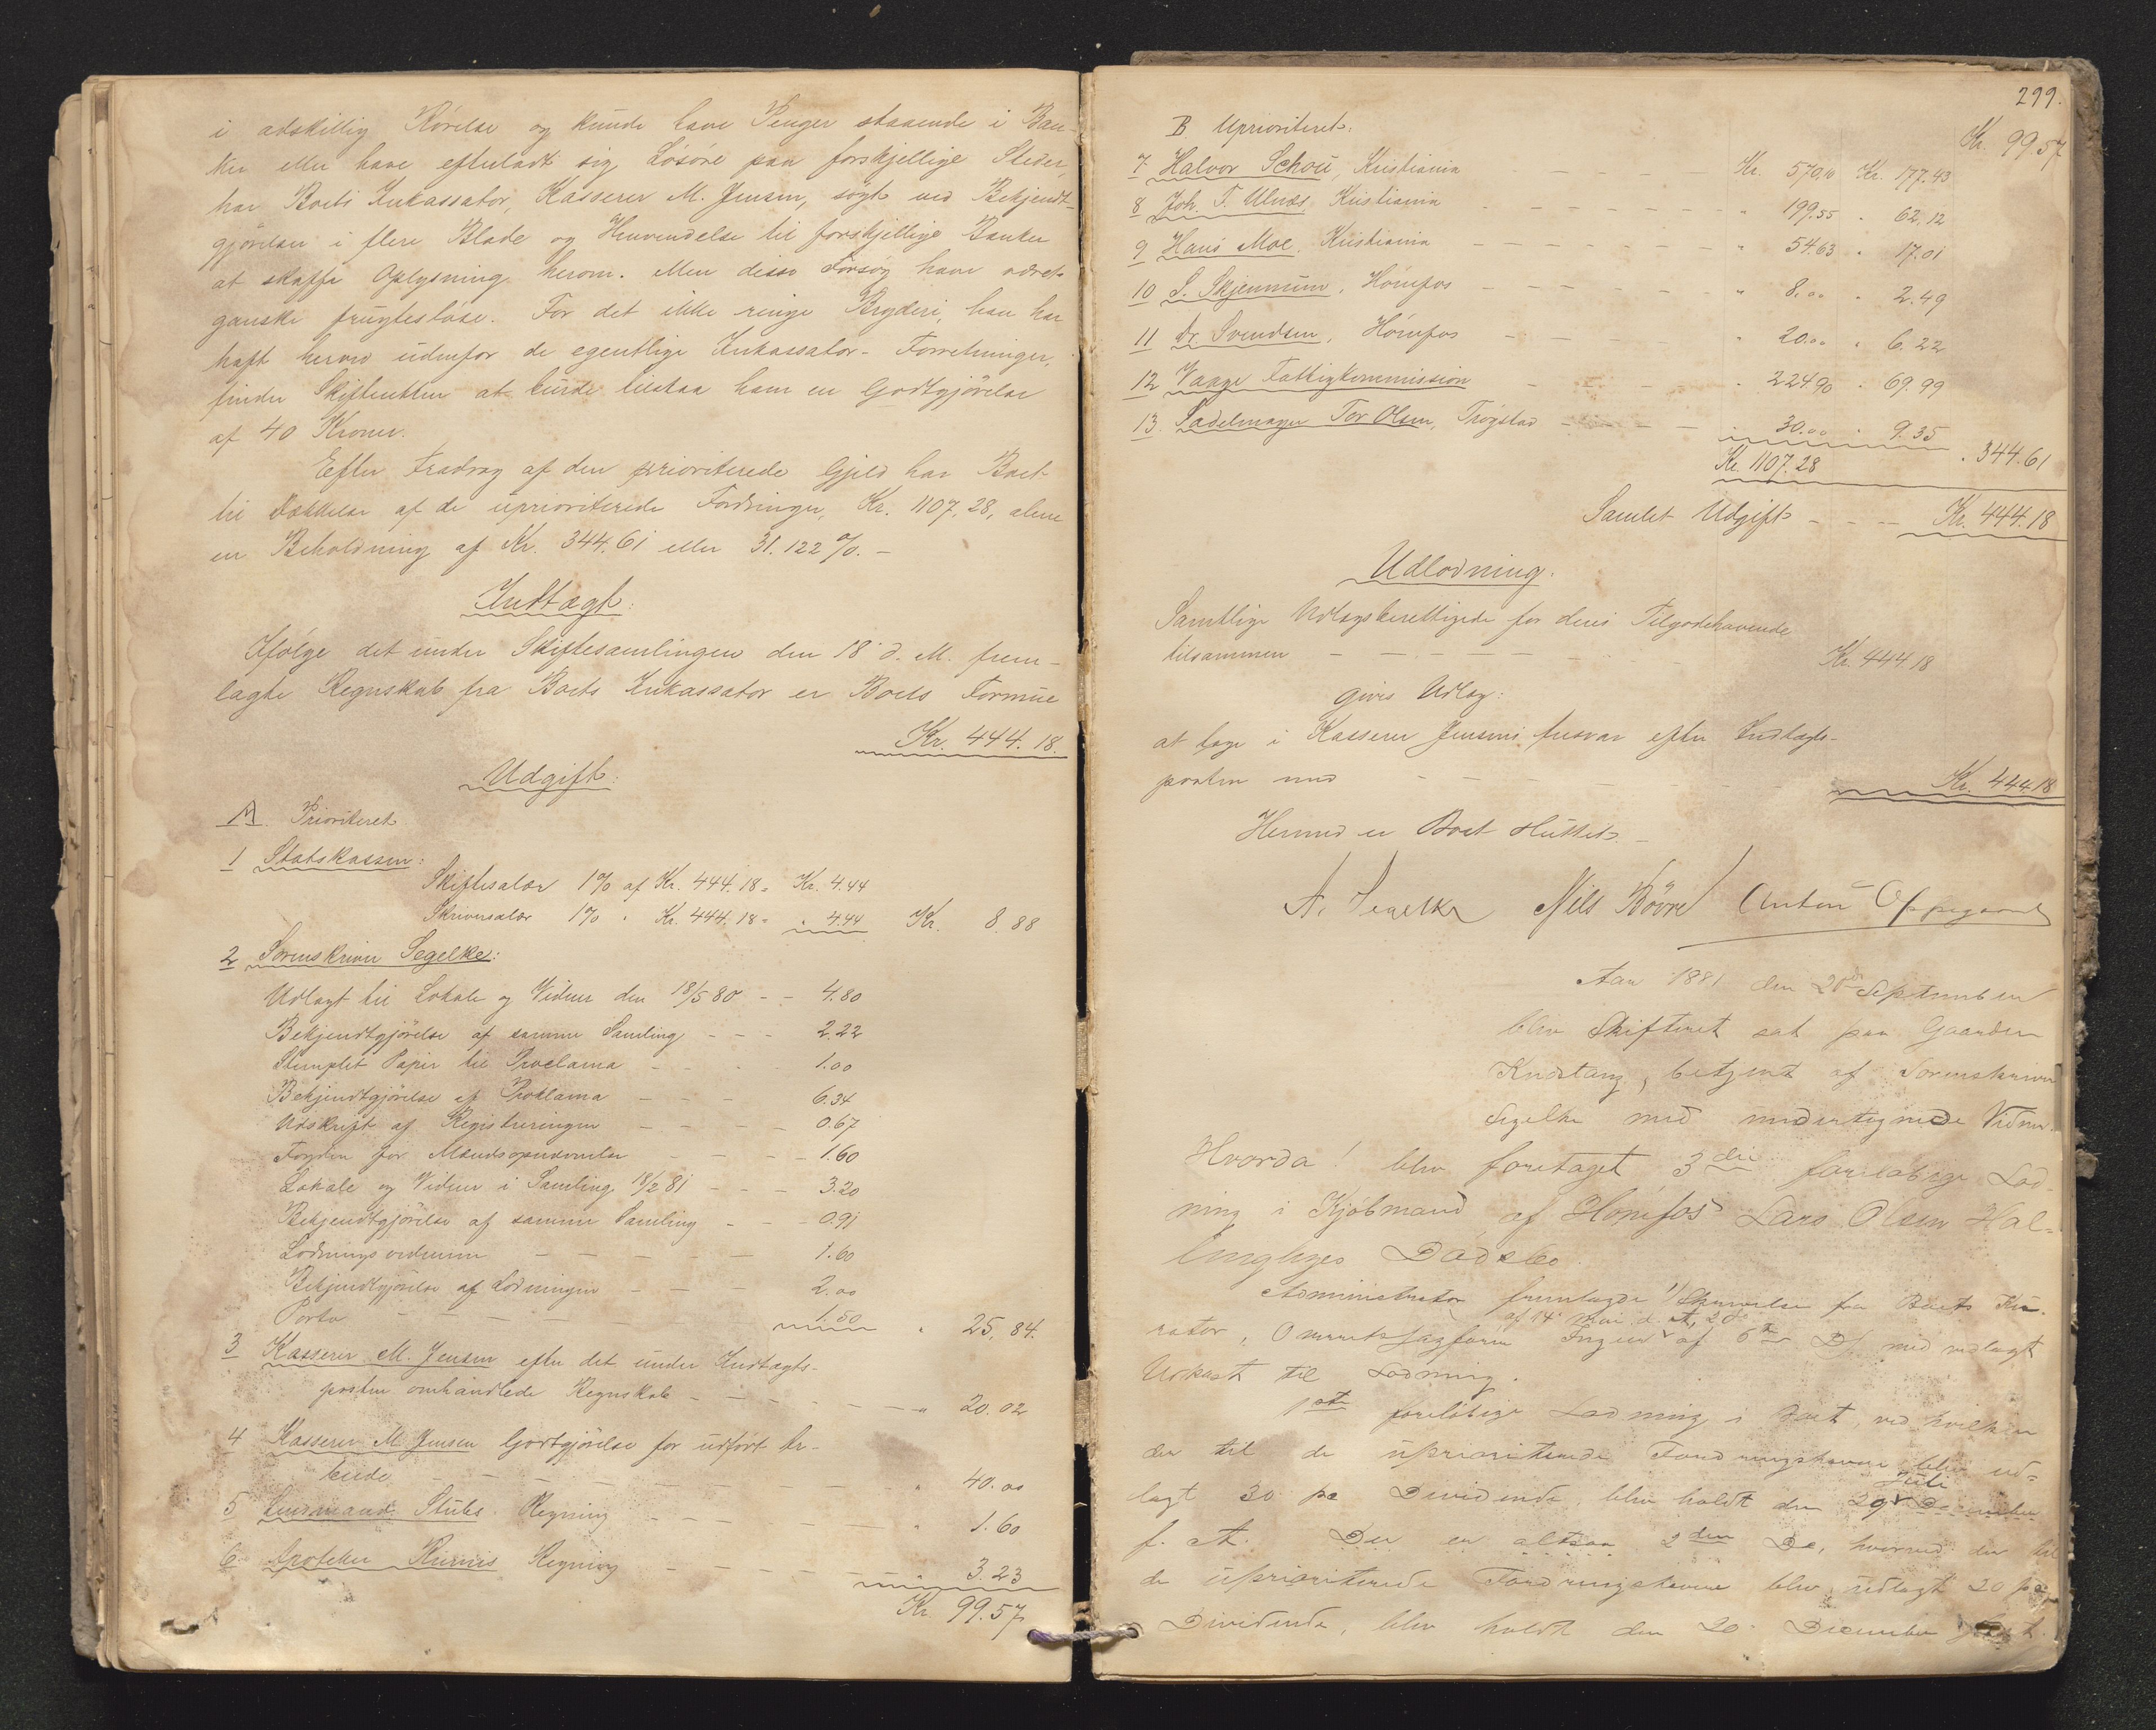 i adskillig Rørelse og kunde have Penger staaende i Ban-
ker eller have efterladt sig Løsøre paa forskjellige Steder,
har Boets Inkassator, Kasserer M. Jensen, søgt ved Bekjendt-
gjørelser i flere Blade og Henvendelse til forskjellige Banker
at skaffe Oplysning herom. Men disse Forsøg have været
ganske frugtesløse. For det ikke ringe Bryderi, han har
haft herved udenfor de egentlige Inkassator-Forretninger,
finder Skifteretten at burde tilstaa ham en Godtgjørelse
af 40 Kroner.
Efter Fradrag af den prioriterede Gjeld har Boet
til Dækkelse af de uprioriterede Fordringer, Kr. 1107.28, alene
en Beholdning af Kr. 344.61 eller 31.122 %. -
Indtægt:
Ifølge det under Skiftesamlingen den 18 d. M. frem-
lagte Regnskab fra Boets Inkassator er Boets Formue
Kr. 444.18.
Udgift:
A. Prioriteret
1 Statskassen:
Skiftesalær 1% af Kr. 444.18 = Kr. 4.44
Skriversalær 1% " Kr. 444.18 = " 4.44 Kr. 8.88
2 Sorenskriver Segelke:
Udlagt til Lokale og Vidner den 18/5 80 - - 4.80
Bekjendtgjørelse af samme Samling - - - 2.22
Stemplet Papir til Proclama - - - 1.00
Bekjendtgjørelse af Proklama - - - 6.34
Udskrift af Registreringen - - - - 0.67
Fogden for Mandsopnævnelse - - - - 1.60
Lokale og Vidner i Samling 18/2 81 - - - 3.20
Bekjendtgjørelse af samme Samling - - - 0.91
Lodningsvidnerne - - - - - 1.60
Bekjendtgjørelse af Lodningen - - - 2.00
Porto - - - - - 1.50 " 25.84.
3 Kasserer M. Jensen efter det under Indtægts-
posten omhandlede Regnskab - - - - - - " 20.02
4 Kasserer M. Jensen Godtgjørelse for udført Ar-
beide - - - - - - - " 40.00
5 Lensmand Stubs Regning - - - - - - " 1.60
6 Apotheker Regning - - - - - " 3.23
Kr. 99.57
299.
Kr. 99.57
B. Uprioriteret:
7 Halvor Schou, Kristiania - - - - Kr. 570.10 Kr. 177.43
8 Joh. T. Ulnæs, Kristiania - - - - - - " 199.55 " 62.12
9 Hans Moe, Kristiania - - - - - - " 54.63 " 17.01
10 S. Skjennum, Hønefos - - - - - - " 8.00 " 2.49
11 Dr. Svendsen, Hønefos - - - " 20.00 " 6.22
12 Vaage Fattigkommission - - - - " 224.90 " 69.99
13. Sadelmager Tor Olsen, Thøgstad - - - - " 30.00 " 9.35
Kr. 1107.28 " 344.61
Samlet Udgift - - - Kr. 444.18
Udlodning.
Samtlige Udlægsberettigede for deres Tilgodehavende
tilsammen - - - - - - Kr. 444.18
gives Udlæg:
at tage i Kasserer Jensens Ansvar efter Indtægts-
posten med - - - - - Kr. 444.18
Hermed er Boet sluttet. -
A. Segelke Nils Bøvre Anton Oppegaard
Aar 1881 den 20de September
blev Skifteret sat paa Gaarden
Knestang, betjent af Sorenskriver
Segelke med undertegnede Vidner.
Hvorda! blev foretaget 3die foreløbige Lod-
ning i Kjøbmand af Hønefos Lars Olsen Hal-
Dødsbo.
Administrator fremlagde 1) Skrivelse fra Boets Ku-
af 14 Mai d. A, 2)
rator, Overretssagfører af 6te Ds med vedlagt
Udkast til Lodning.
1ste foreløbige Lodning i Boet, ved hvilken
der til de uprioriterede Fordringshavere blev ud-
Juli
lagt 30 pc Dividende, blev holdt den 29 December
f. A. Der er altsaa 2den Do, hvorved der til
de uprioriterede Fordringshavere blev udlagt 20 pc
Dividende, blev holdt den 20 December